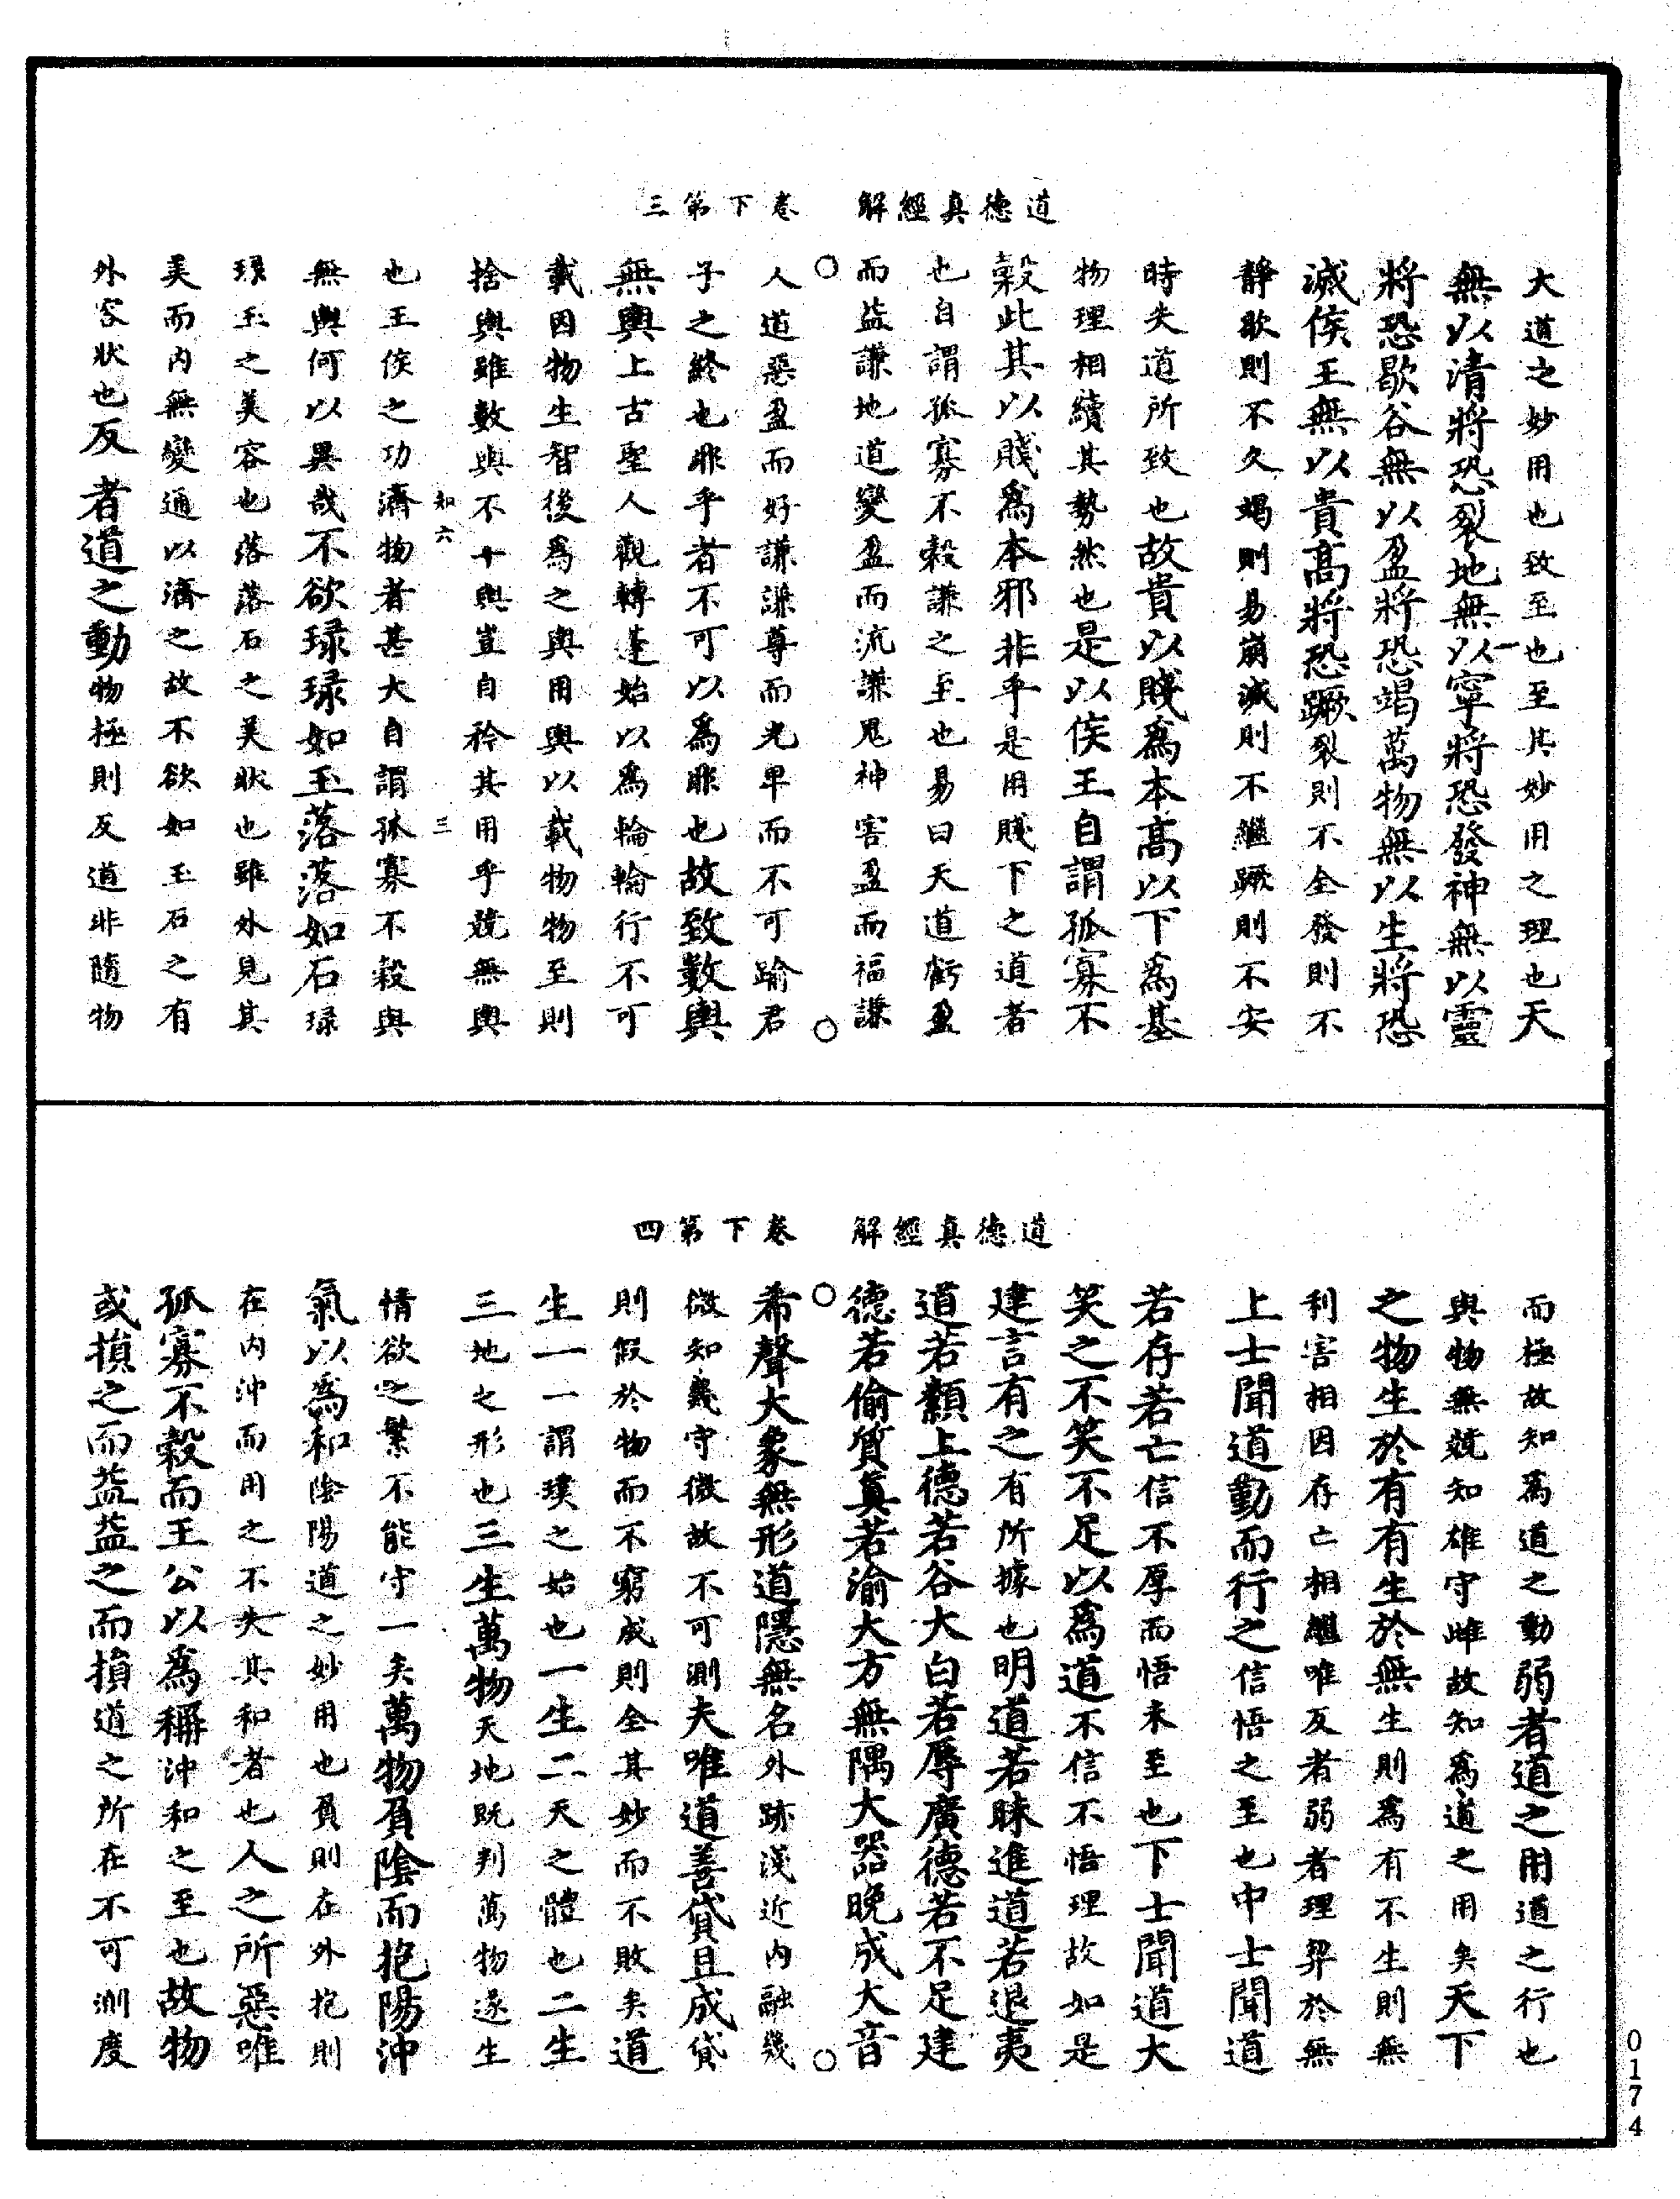 道德真經解　卷下第三
大道之妙用也致至也一也至其妙用之理也天
無以清將恐裂地無以寧將恐發神無以靈
將恐歇谷無以盈將恐竭萬物無以生將恐
滅侯王無以貴高將恐蹶裂則不全發則不
靜歇則不久竭則易崩滅則不繼蹶則不安
時失道所致也故貴以賤為本高以下為基
物理相續其勢然也是以侯王自謂孤寡不
穀此其以賤為本邪非乎是用賤下之道者
也自謂孤寡不穀謙之至也易曰天道虧盈
而益謙地道變盈而流謙鬼神害盈而福謙
人道惡盈而好謙謙尊而光卑而不可踰君
子之終也非乎者不可以為非也故致數輿
無輿上古聖人觀轉蓬始以為輪輪行不可
載因物生智後為之輿用輿以載物物至則
捨輿雖數輿不十輿豈自矜其用乎競無輿
知六　三
也王侯之功濟物者甚大自謂孤寡不穀與
無輿何以異哉不欲琭琭如玉落落如石琭
琭玉之美容也落落石之美狀也雖外見其
美而內無變通以濟之故不欲如玉石之有
外容狀也反者道之動物極則反道非隨物
道德真經解　卷下第四
而極故知為道之動弱者道之用道之行也
與物無競知雄守雌故知為道之用矣天下
之物生於有有生於無生則為有不生則無
利害相因存亡相繼唯反者弱者理昇於無
上士聞道勤而行之信悟之至也中士聞道
若存若亡信不厚而悟未至也下士聞道大
笑之不笑不足以為道不信不悟理故如是
建言有之有所據也明道若昧進道若退夷
道若纇上德若谷大白若辱廣德若不足建
德若偷質真若渝大方無隅大器晚成大音
希聲大象無形道隱無名外跡淺近內融幾
微知幾守微故不可測夫唯道善貸且成貸
則假於物而不窮成則全其妙而不敗矣道
生一一謂璞之始也一生二天之體也二生
三地之形也三生萬物天地既判萬物遂生
情欲之繁不能守一矣萬物負陰而抱陽沖
氣以為和陰陽道之妙用也負則在外抱則
在內沖而用之不失其和者也人之所惡唯
孤寡不穀而王公以為稱沖和之至也故物
或損之而益益之而損道之所在不可測度
0174